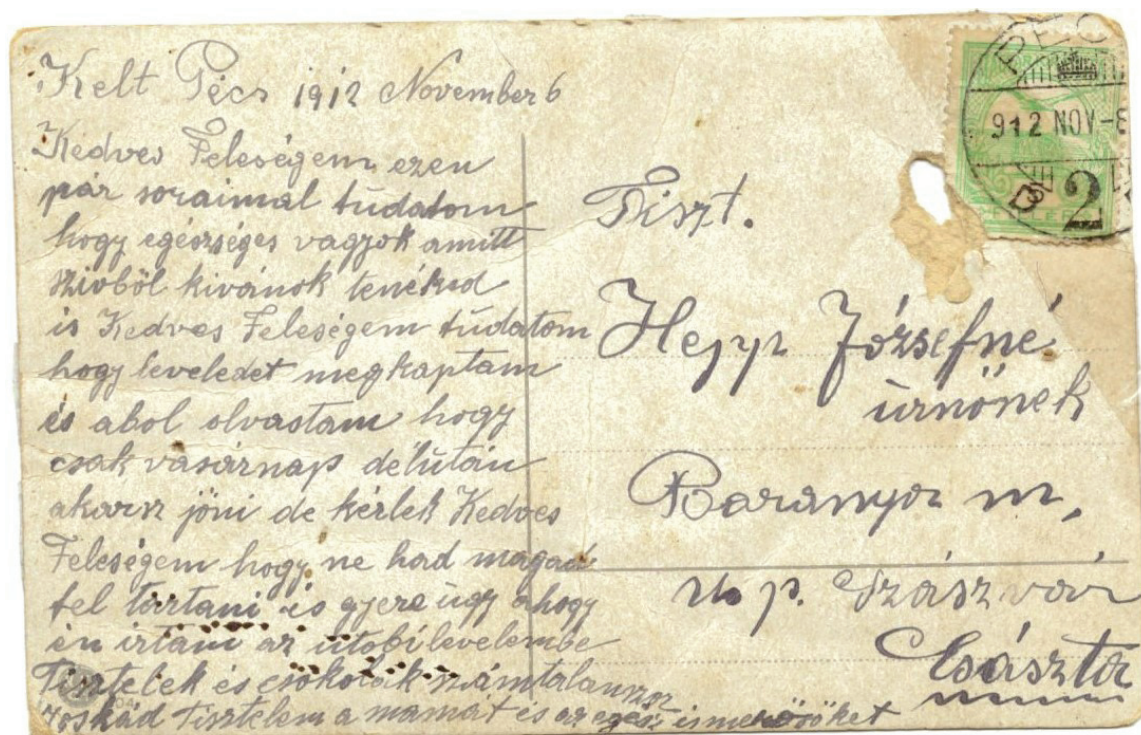 Kelt Pécs 1912 November 6
Kedves Feleségem ezen
pár soraimal tudatom
hogy egészséges vagyok amitt
szivből kivánok tenéked
is Kedves Feleségem tudatom
hogy leveledet megkaptam
és abol olvastam hogy
csak vasárnap délután
akarsz jöni de kérlek Kedves
Feleségem hogy ne had magad
fel tartani és gyere úgy ahogy
én irtam az utobi levelembe
Tisztelek és csokolak számtalanszor
Joskád Tisztelem a mamát és az egész ismerősöket
PÉC
912 NOV-
2
Tiszt.
Hepp Józsefné
urnőnek
Baranya m.
u. p. Szászvár
Császta